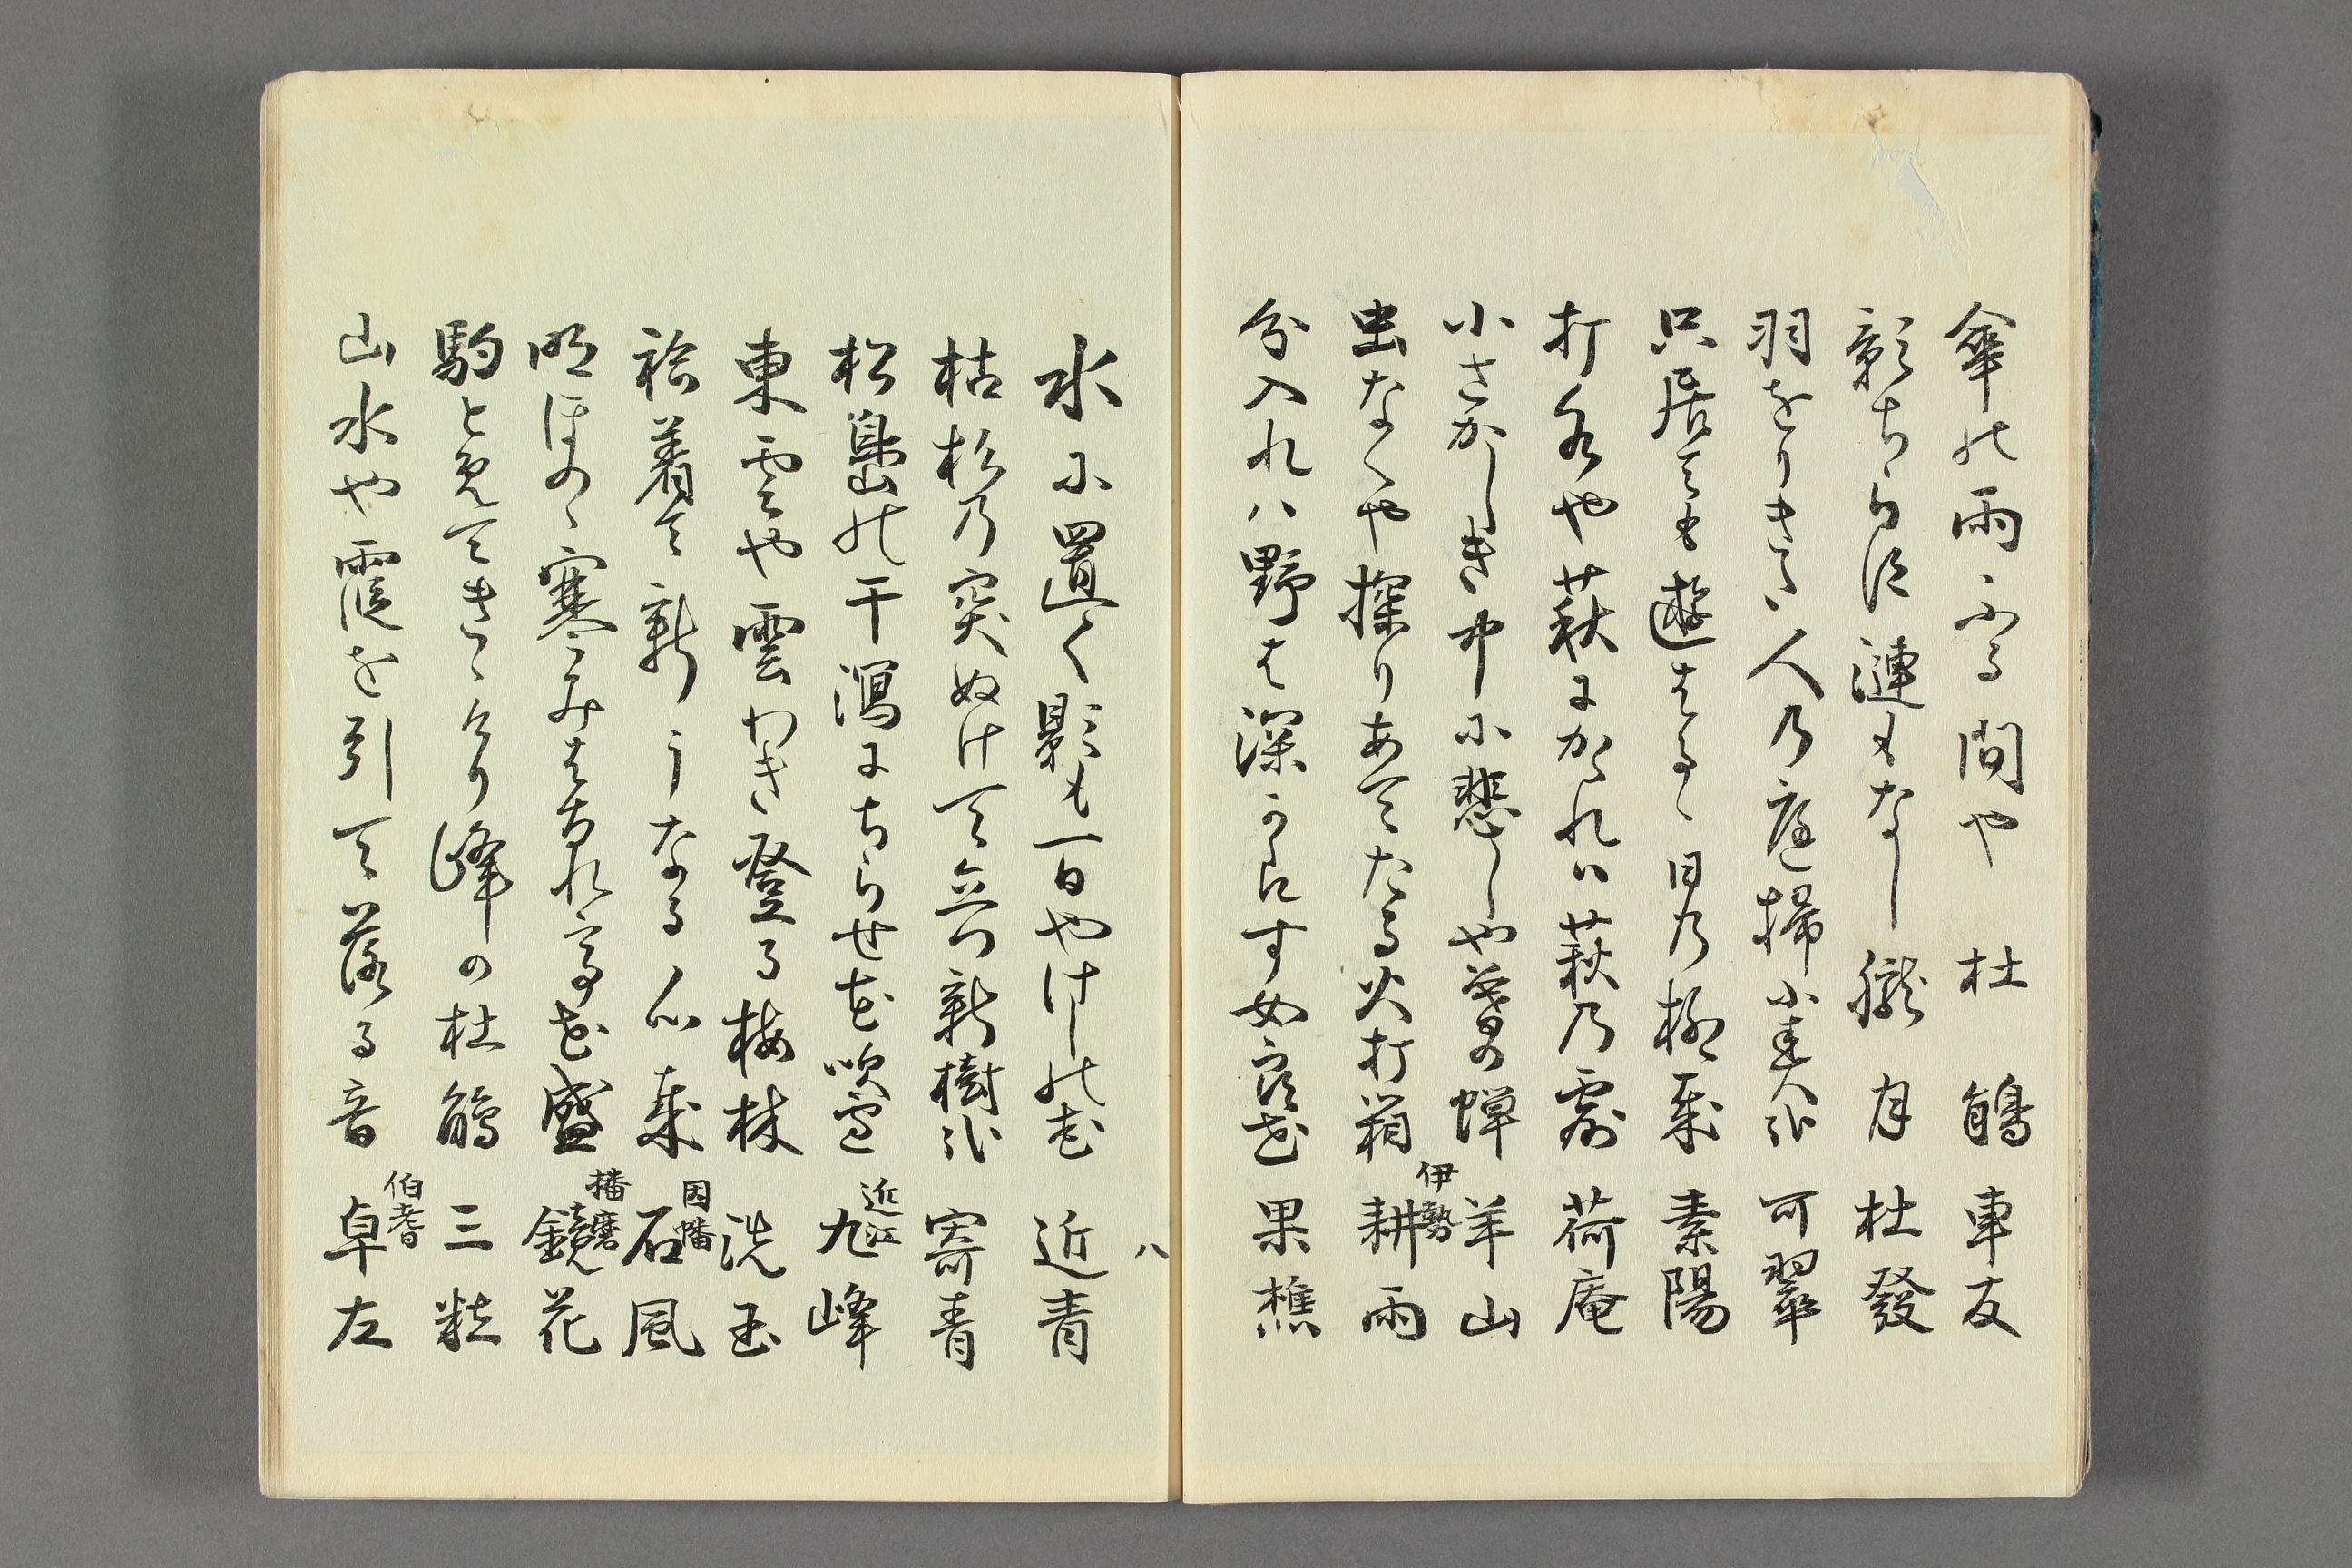 傘の雨ふる間や杜鵑 車友
影ちらほ漣もなし朧月 杜發
羽をりきた人の庭掃小春哉 可翠
只居ても遊はるゝ日の柳哉 素陽
打水や萩にかゝれハ萩の露 荷庵
小さかしき中に悲しや暮の蝉 羊山
虫なくや探りあてたる火打箱 伊勢 耕雨
分入れハ野は深からす女郎花 果樵
八
水に置く影も一日やけしの花 近青
枯杉の突ぬけて立つ新樹哉 寄青
松島の干潟にちらせ花吹雪 近江 九峰
東雲や雲わき登る梅林 洗玉
袷着て新うなる心哉 因幡 石風
明ほのゝ寒みはなれて花盛 播磨 鏡花
駒とめてきゝけり峰の杜鵑 三粒
山水や霞を引て落る音 伯耆 卓左